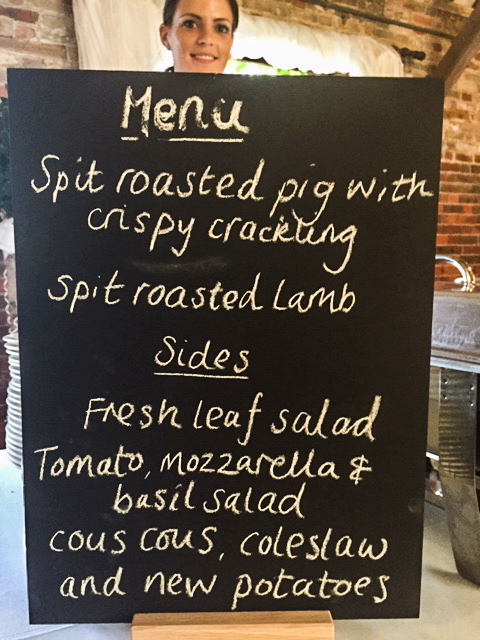 Menu
Spit roasted pig with
crispy crackling
Spit roasted Lamb
Sides
Fresh leaf salad
Tomato, mozzarella &
basil salad
cous cous, coleslaw
and new potatoes